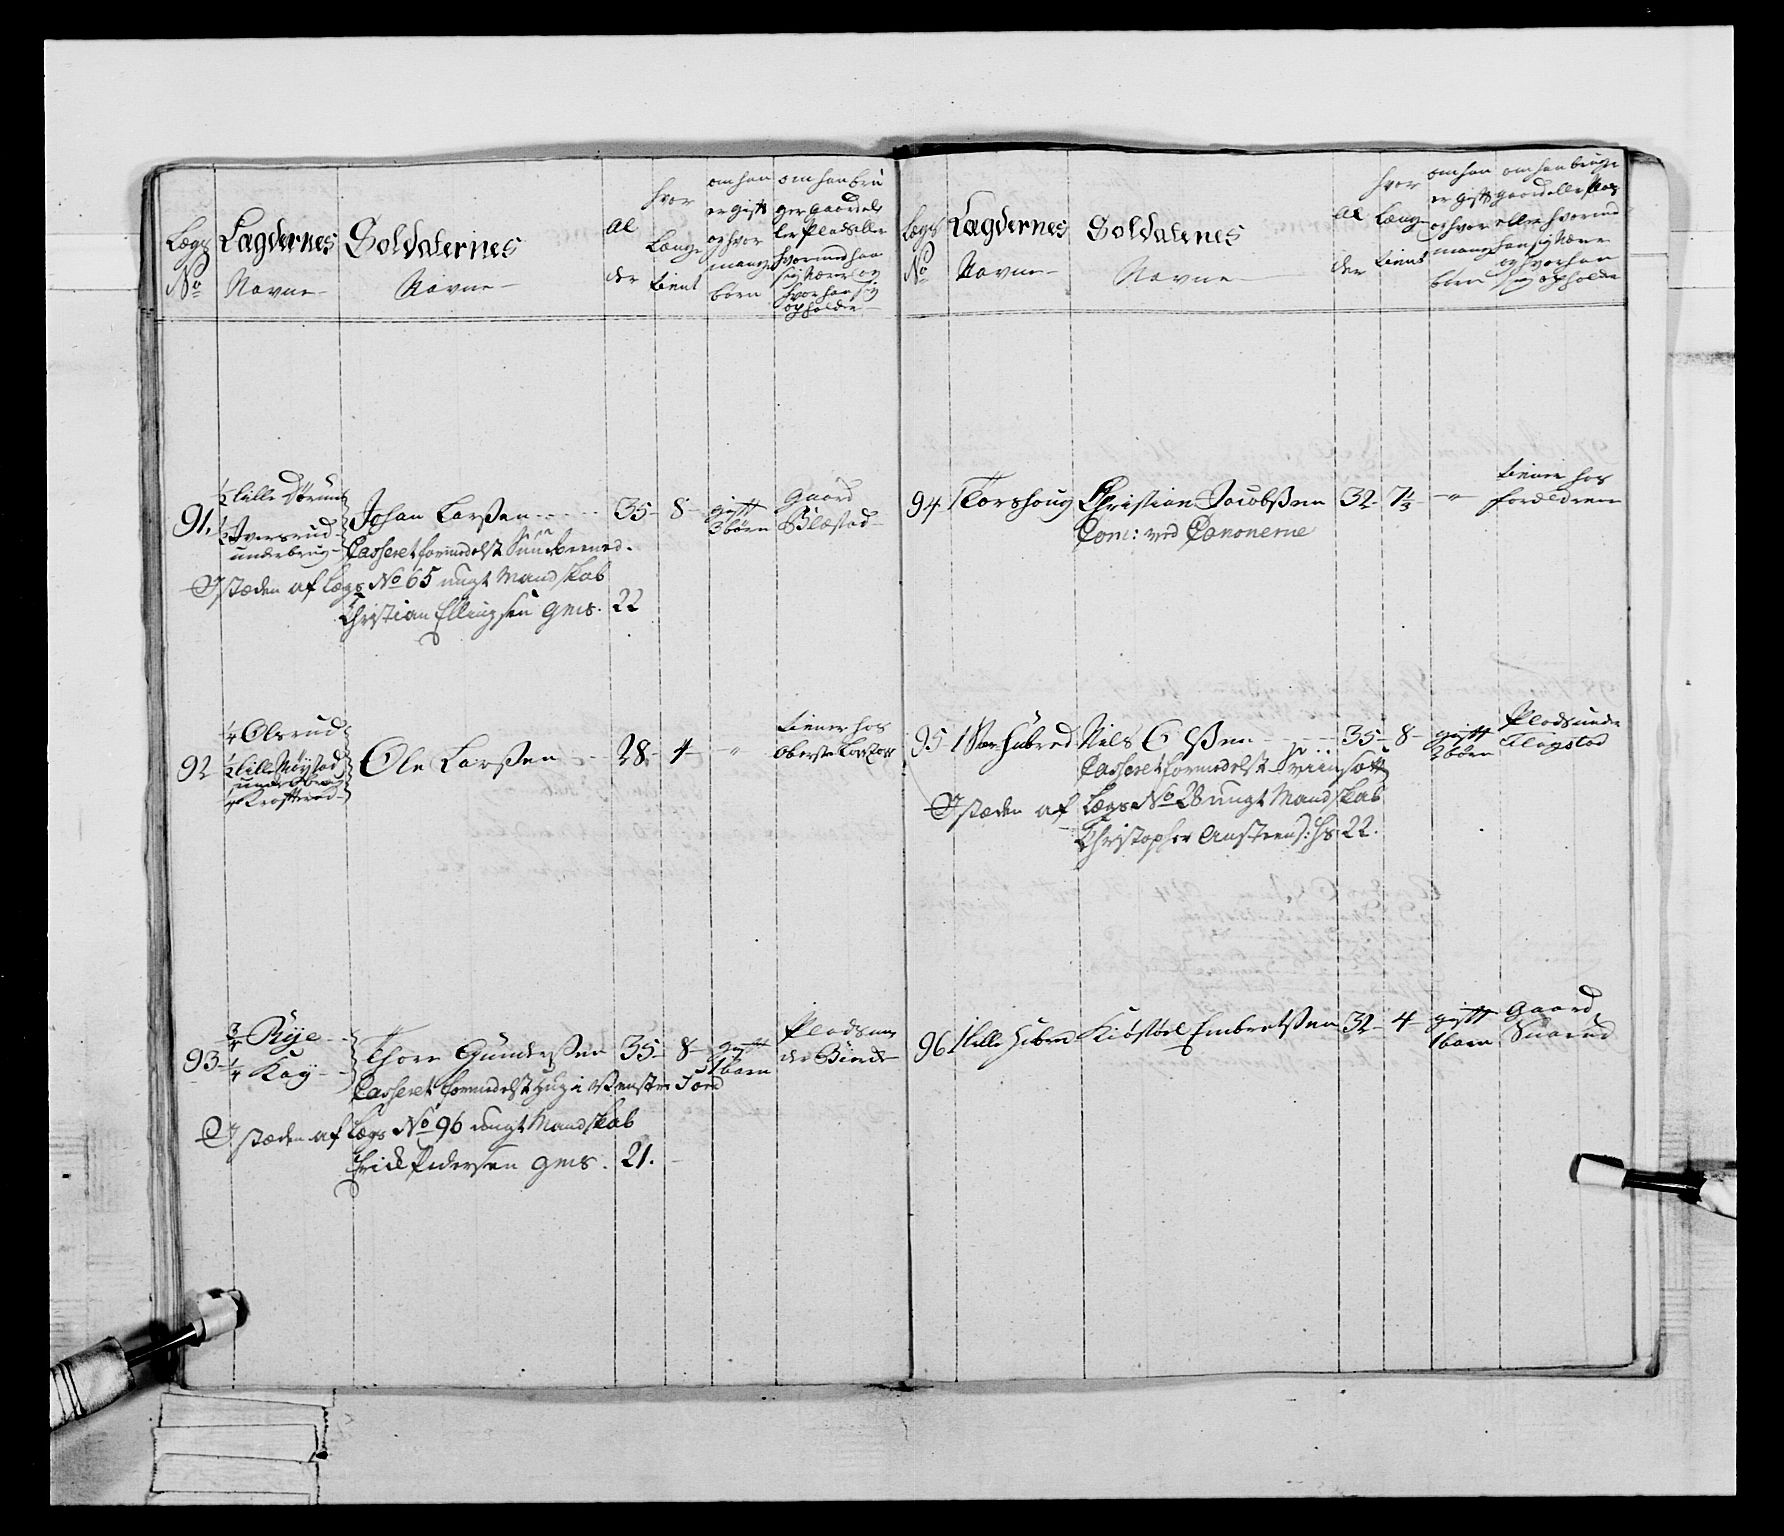 Lægs
No
Lægdernes
Navne
Soldaternes
Navne
Al
der
hvor
Længe
tient
om han
er gift
og hvor
mange
børn
om han bru
ger Gaard el
ler Plads eller
hvormed han
sig Nærer og
hvor han sig
opholder
91.
1/2 Lille Dørum
1/2 Iversrud
underbrug
Johan Larsen
35 8 gift
3 børn
Gaard
Blæstad
Casseret formedelst
I stæden af Lægs No 65 ungt Mandskab
Christian Ellingsen gms. 22
92
1/4 Olsrud
1/2 Lille Nøystad
under
1/4
Ole Larsen 28 4 "
tiener hos
Oberste
93
3/4 Rye
1/4 Kay
Thore Gundersen 35 8 gift
1 barn
Plads un
der
Casseret formedelst hug i Venstre
I stæden af Lægs No 96 ungt Mandskab
Erick Pedersen gms. 21.
Lægs
No
Lægdernes
Navne
Soldatenes
Navne
Al
der
hvor
Længe
tient
om han
er gift
og hvor
mange
børn
om han bruger
gaard eller Plads
eller hvormed
han sig Nærer
og hvor han
sig opholder
94 1 Torshoug Christian Jacobsen 32 7 1/3 "
tiener hos
forældrene
Com: ved Canonerne
95 1 Stor Hubred Nils Olsen 35 8 gift
2 børn
Plads under
Flagstad
Casseret formedelst
I stæden af Lægs No 28 ungt Mandskab
Christopher 22.
96 1 Lille Hubred Kiøstøel Embretsen 32 4 gift
1 barn
Gaard